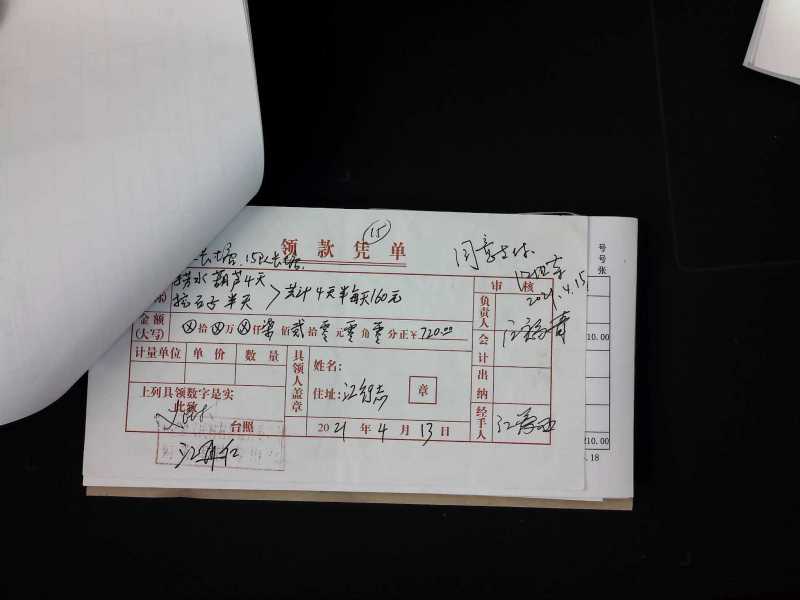 (15)
领款凭单
同意支付
2021.4.15
捞水葫芦4天
挖石子半天 > 共计4天半每天160元
审核
负责人
会计
出纳
经手人
金额
(大写)
⊗拾⊗万⊗仟柒佰贰拾零元零角零分正¥720.00
计量单位 单价 数量
具领人盖章
姓名:
住址:
章
上列具领数字是实
此致
台照
2021年4月13日
号
号
张
10.00
210.00
.18